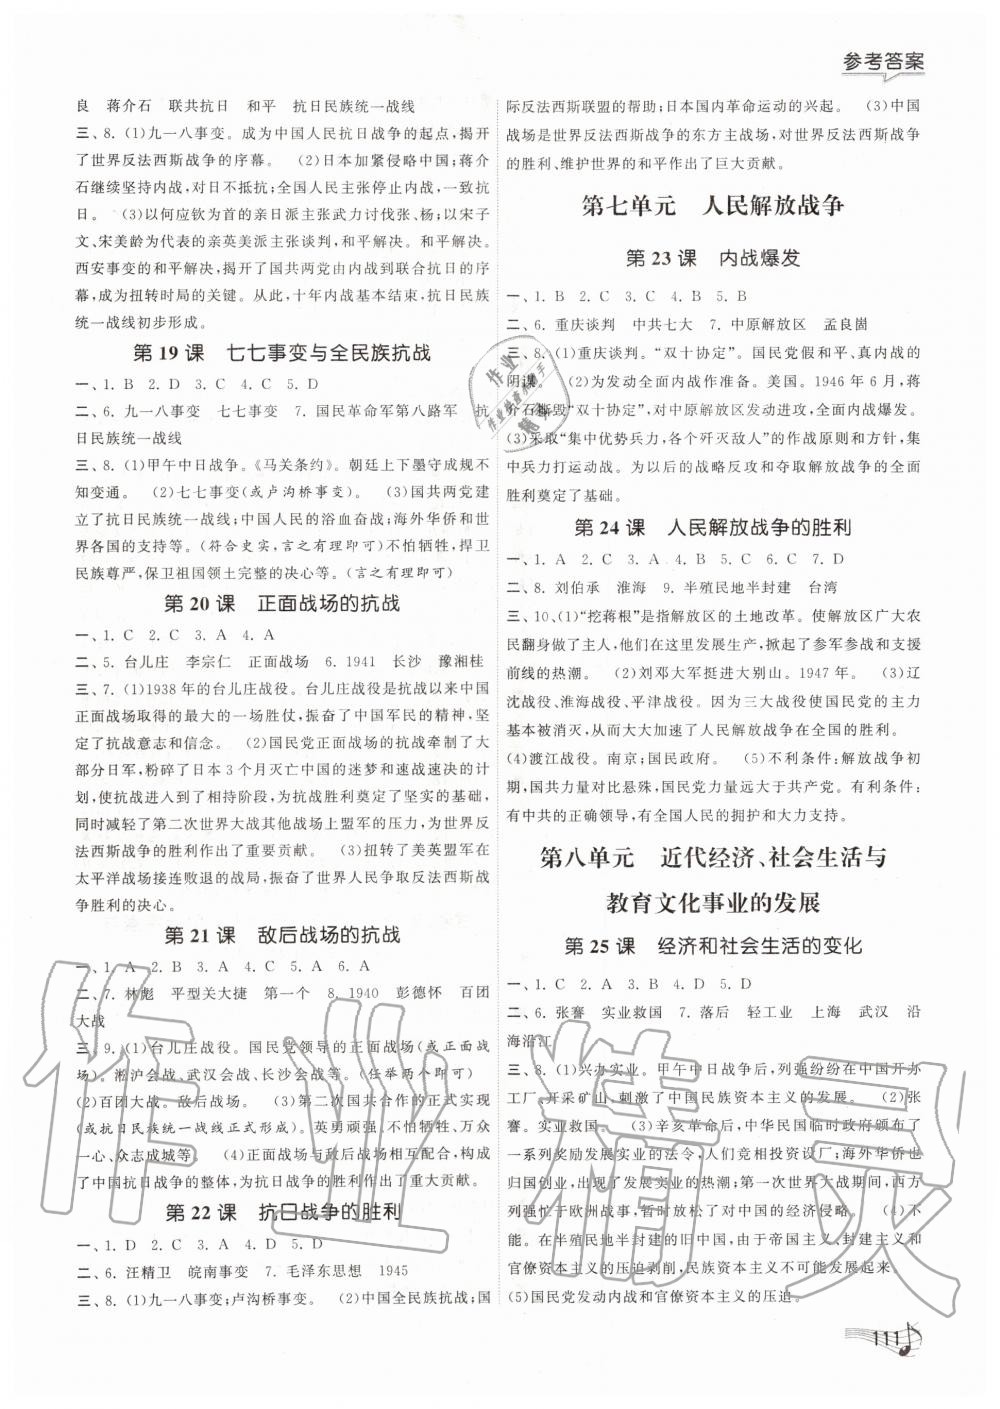 参考答案
良　蒋介石　联共抗日　和平　抗日民族统一战线
三、8. (1)九一八事变。成为中国人民抗日战争的起点,揭开
了世界反法西斯战争的序幕。　(2)日本加紧侵略中国;蒋介
石继续坚持内战,对日不抵抗;全国人民主张停止内战,一致抗
日。　(3)以何应钦为首的亲日派主张武力讨伐张、杨;以宋子
文、宋美龄为代表的亲英美派主张谈判,和平解决。和平解决。
西安事变的和平解决,揭开了国共两党由内战到联合抗日的序
幕,成为扭转时局的关键。从此,十年内战基本结束,抗日民族
统一战线初步形成。
第 19 课　七七事变与全民族抗战
一、1. B　2. D　3. C　4. C　5. D
二、6. 九一八事变　七七事变　7. 国民革命军第八路军　抗
日民族统一战线
三、8. (1)甲午中日战争。《马关条约》。朝廷上下墨守成规不
知变通。　(2)七七事变(或卢沟桥事变)。　(3)国共两党建
立了抗日民族统一战线;中国人民的浴血奋战;海外华侨和世
界各国的支持等。(符合史实,言之有理即可)不怕牺牲,捍卫
民族尊严,保卫祖国领土完整的决心等。(言之有理即可)
第 20 课　正面战场的抗战
一、1. C　2. C　3. A　4. A
二、5. 台儿庄　李宗仁　正面战场　6. 1941　长沙　豫湘桂
三、7. (1)1938 年的台儿庄战役。台儿庄战役是抗战以来中国
正面战场取得的最大的一场胜仗,振奋了中国军民的精神,坚
定了抗战意志和信念。　(2)国民党正面战场的抗战牵制了大
部分日军,粉碎了日本 3 个月灭亡中国的迷梦和速战速决的计
划,使抗战进入到了相持阶段,为抗战胜利奠定了坚实的基础,
同时减轻了第二次世界大战其他战场上盟军的压力,为世界反
法西斯战争的胜利作出了重要贡献。　(3)扭转了美英盟军在
太平洋战场接连败退的战局,振奋了世界人民争取反法西斯战
争胜利的决心。
第 21 课　敌后战场的抗战
一、1. A　2. B　3. A　4. C　5. A　6. A
二、7. 林彪　平型关大捷　第一个　8. 1940　彭德怀　百团
大战
三、9. (1)台儿庄战役。国民党领导的正面战场(或正面战
场)。淞沪会战、武汉会战、长沙会战等。(任举两个即可)
(2)百团大战。敌后战场。　(3)第二次国共合作的正式实现
(或抗日民族统一战线正式形成)。英勇顽强、不怕牺牲、万众
一心、众志成城等。　(4)正面战场与敌后战场相互配合,构成
了中国抗日战争的整体,为抗日战争的胜利作出了贡献。
第 22 课　抗日战争的胜利
一、1. D　2. C　3. A　4. D　5. D
二、6. 汪精卫　皖南事变　7. 毛泽东思想　1945
三、8. (1)九一八事变;卢沟桥事变。　(2)中国全民族抗战;国
际反法西斯联盟的帮助;日本国内革命运动的兴起。　(3)中国
战场是世界反法西斯战争的东方主战场,对世界反法西斯战争
的胜利、维护世界的和平作出了巨大贡献。
第七单元　人民解放战争
第 23 课　内战爆发
一、1. B　2. C　3. C　4. B　5. B
二、6. 重庆谈判　中共七大　7. 中原解放区　孟良崮
三、8. (1)重庆谈判。“双十协定”。国民党假和平、真内战的
阴谋。　(2)为发动全面内战作准备。美国。1946 年 6 月,蒋
介石撕毁“双十协定”,对中原解放区发动进攻,全面内战爆发。
(3)采取“集中优势兵力,各个歼灭敌人”的作战原则和方针,集
中兵力打运动战。为以后的战略反攻和夺取解放战争的全面
胜利奠定了基础。
第 24 课　人民解放战争的胜利
一、1. A　2. C　3. D　4. A　5. C　6. C　7. D
二、8. 刘伯承　淮海　9. 半殖民地半封建　台湾
三、10. (1)“挖蒋根”是指解放区的土地改革。使解放区广大农
民翻身做了主人,他们在这里发展生产,掀起了参军参战和支援
前线的热潮。　(2)刘邓大军挺进大别山。1947 年。　(3)辽
沈战役、淮海战役、平津战役。因为三大战役使国民党的主力
基本被消灭,从而大大加速了人民解放战争在全国的胜利。
(4)渡江战役。南京;国民政府。　(5)不利条件:解放战争初
期,国共力量对比悬殊,国民党力量远大于共产党。有利条件:
有中共的正确领导,有全国人民的拥护和大力支持。
第八单元　近代经济、社会生活与
教育文化事业的发展
第 25 课　经济和社会生活的变化
一、1. C　2. A　3. B　4. D　5. D
二、6. 张謇　实业救国　7. 落后　轻工业　上海　武汉　沿
海沿江
三、8. (1)兴办实业。甲午中日战争后,列强纷纷在中国开办
工厂、开采矿山,刺激了中国民族资本主义的发展。　(2)张
謇。实业救国。　(3)辛亥革命后,中华民国临时政府颁布了
一系列奖励发展实业的法令,人们竞相投资设厂;海外华侨也
归国创业,出现了发展实业的热潮;第一次世界大战期间,西方
列强忙于欧洲战事,暂时放松了对中国的经济侵略。　(4)不
能。在半殖民地半封建的旧中国,由于帝国主义、封建主义和
官僚资本主义的压迫剥削,民族资本主义不可能发展起来。
(5)国民党发动内战和官僚资本主义的压迫。
111
作业精灵